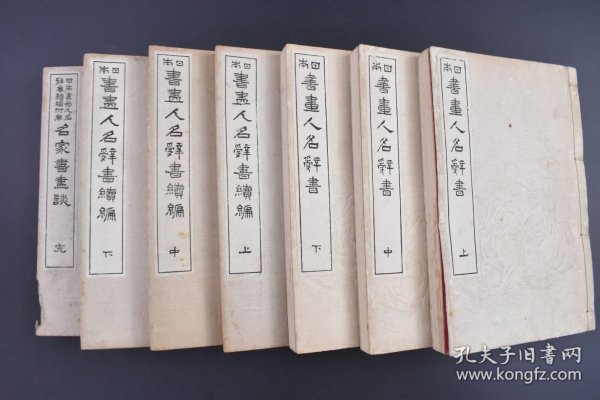 日本 書畫人名辭書 上
日本 書畫人名辭書 中
日本 書畫人名辭書 下
日本 書畫人名辭書續編 上
日本 書畫人名辭書續編 中
日本 書畫人名辭書續編 下
日本書畫人名
辭書續編附錄
名家書畫談 完
孔夫子旧书网
www.kongfz.com